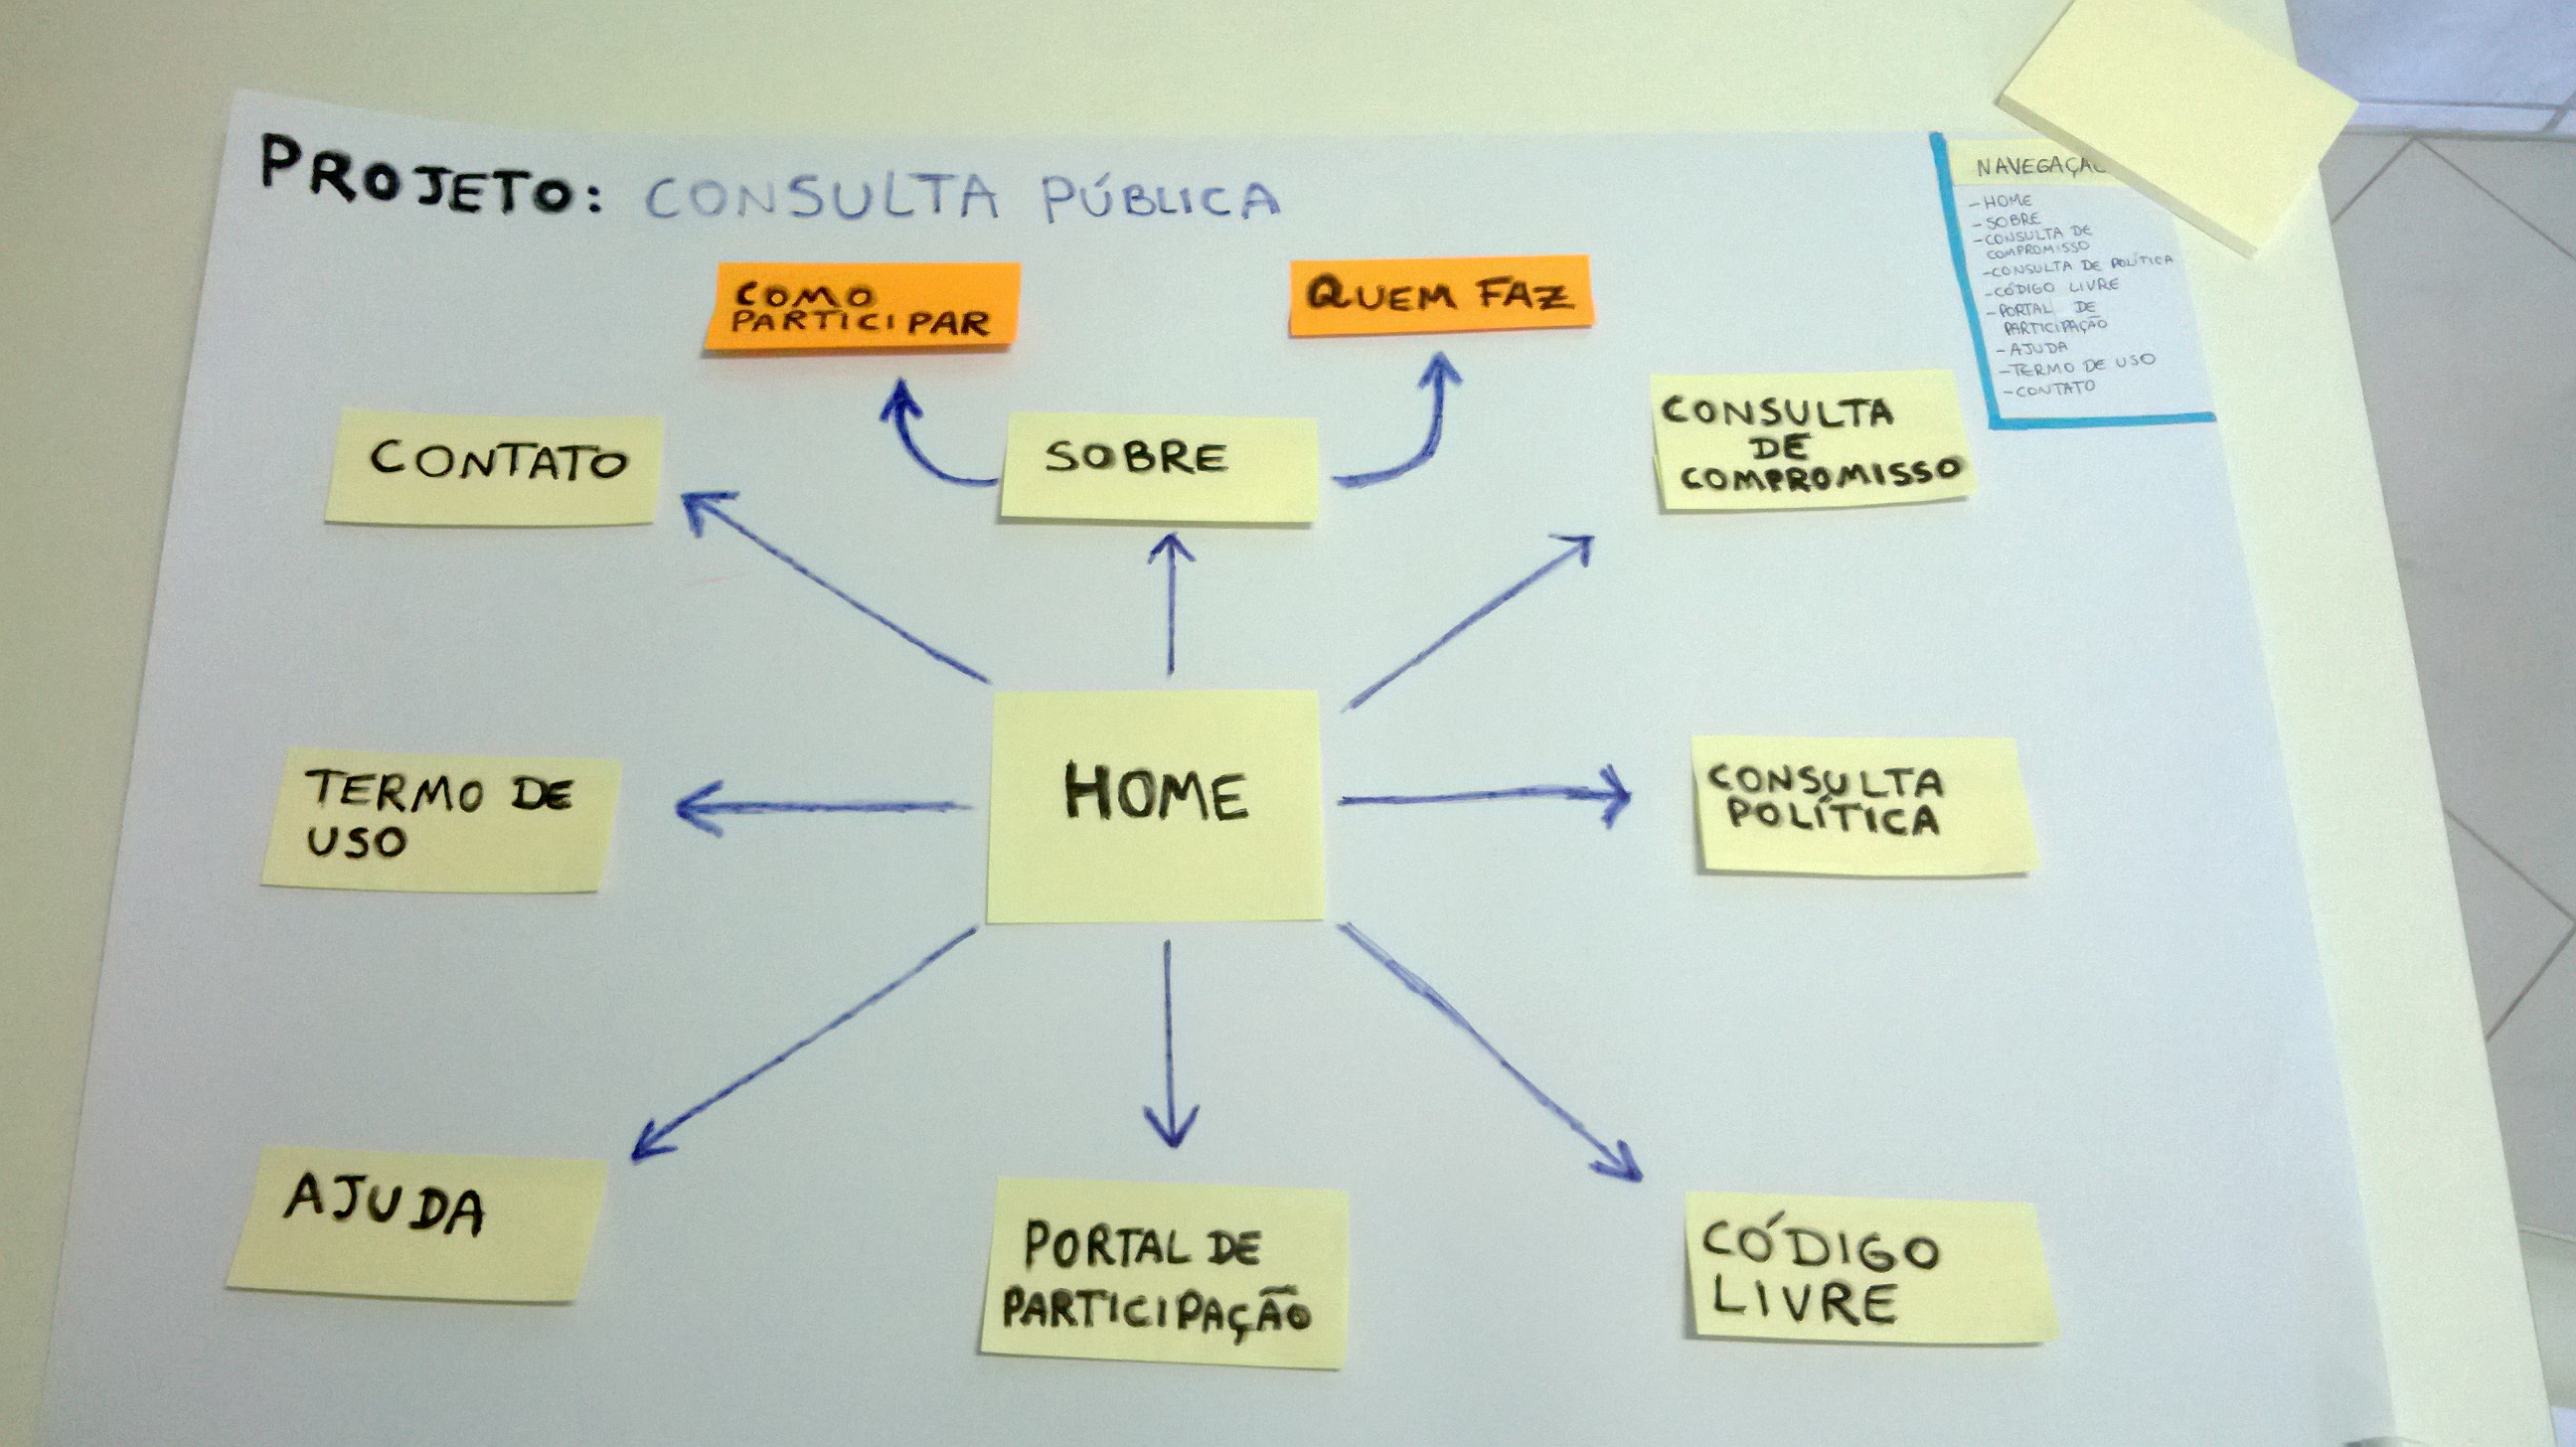 PROJETO: CONSULTA PÚBLICA
NAVEGAÇÃO
-HOME
-SOBRE
-CONSULTA DE
COMPROMISSO
-CONSULTA DE POLÍTICA
-CÓDIGO LIVRE
-PORTAL DE
PARTICIPAÇÃO
-AJUDA
-TERMO DE USO
-CONTATO
COMO
PARTICIPAR
QUEM FAZ
CONTATO
SOBRE
CONSULTA
DE
COMPROMISSO
TERMO DE
USO
HOME
CONSULTA
POLÍTICA
AJUDA
PORTAL DE
PARTICIPAÇÃO
CÓDIGO
LIVRE